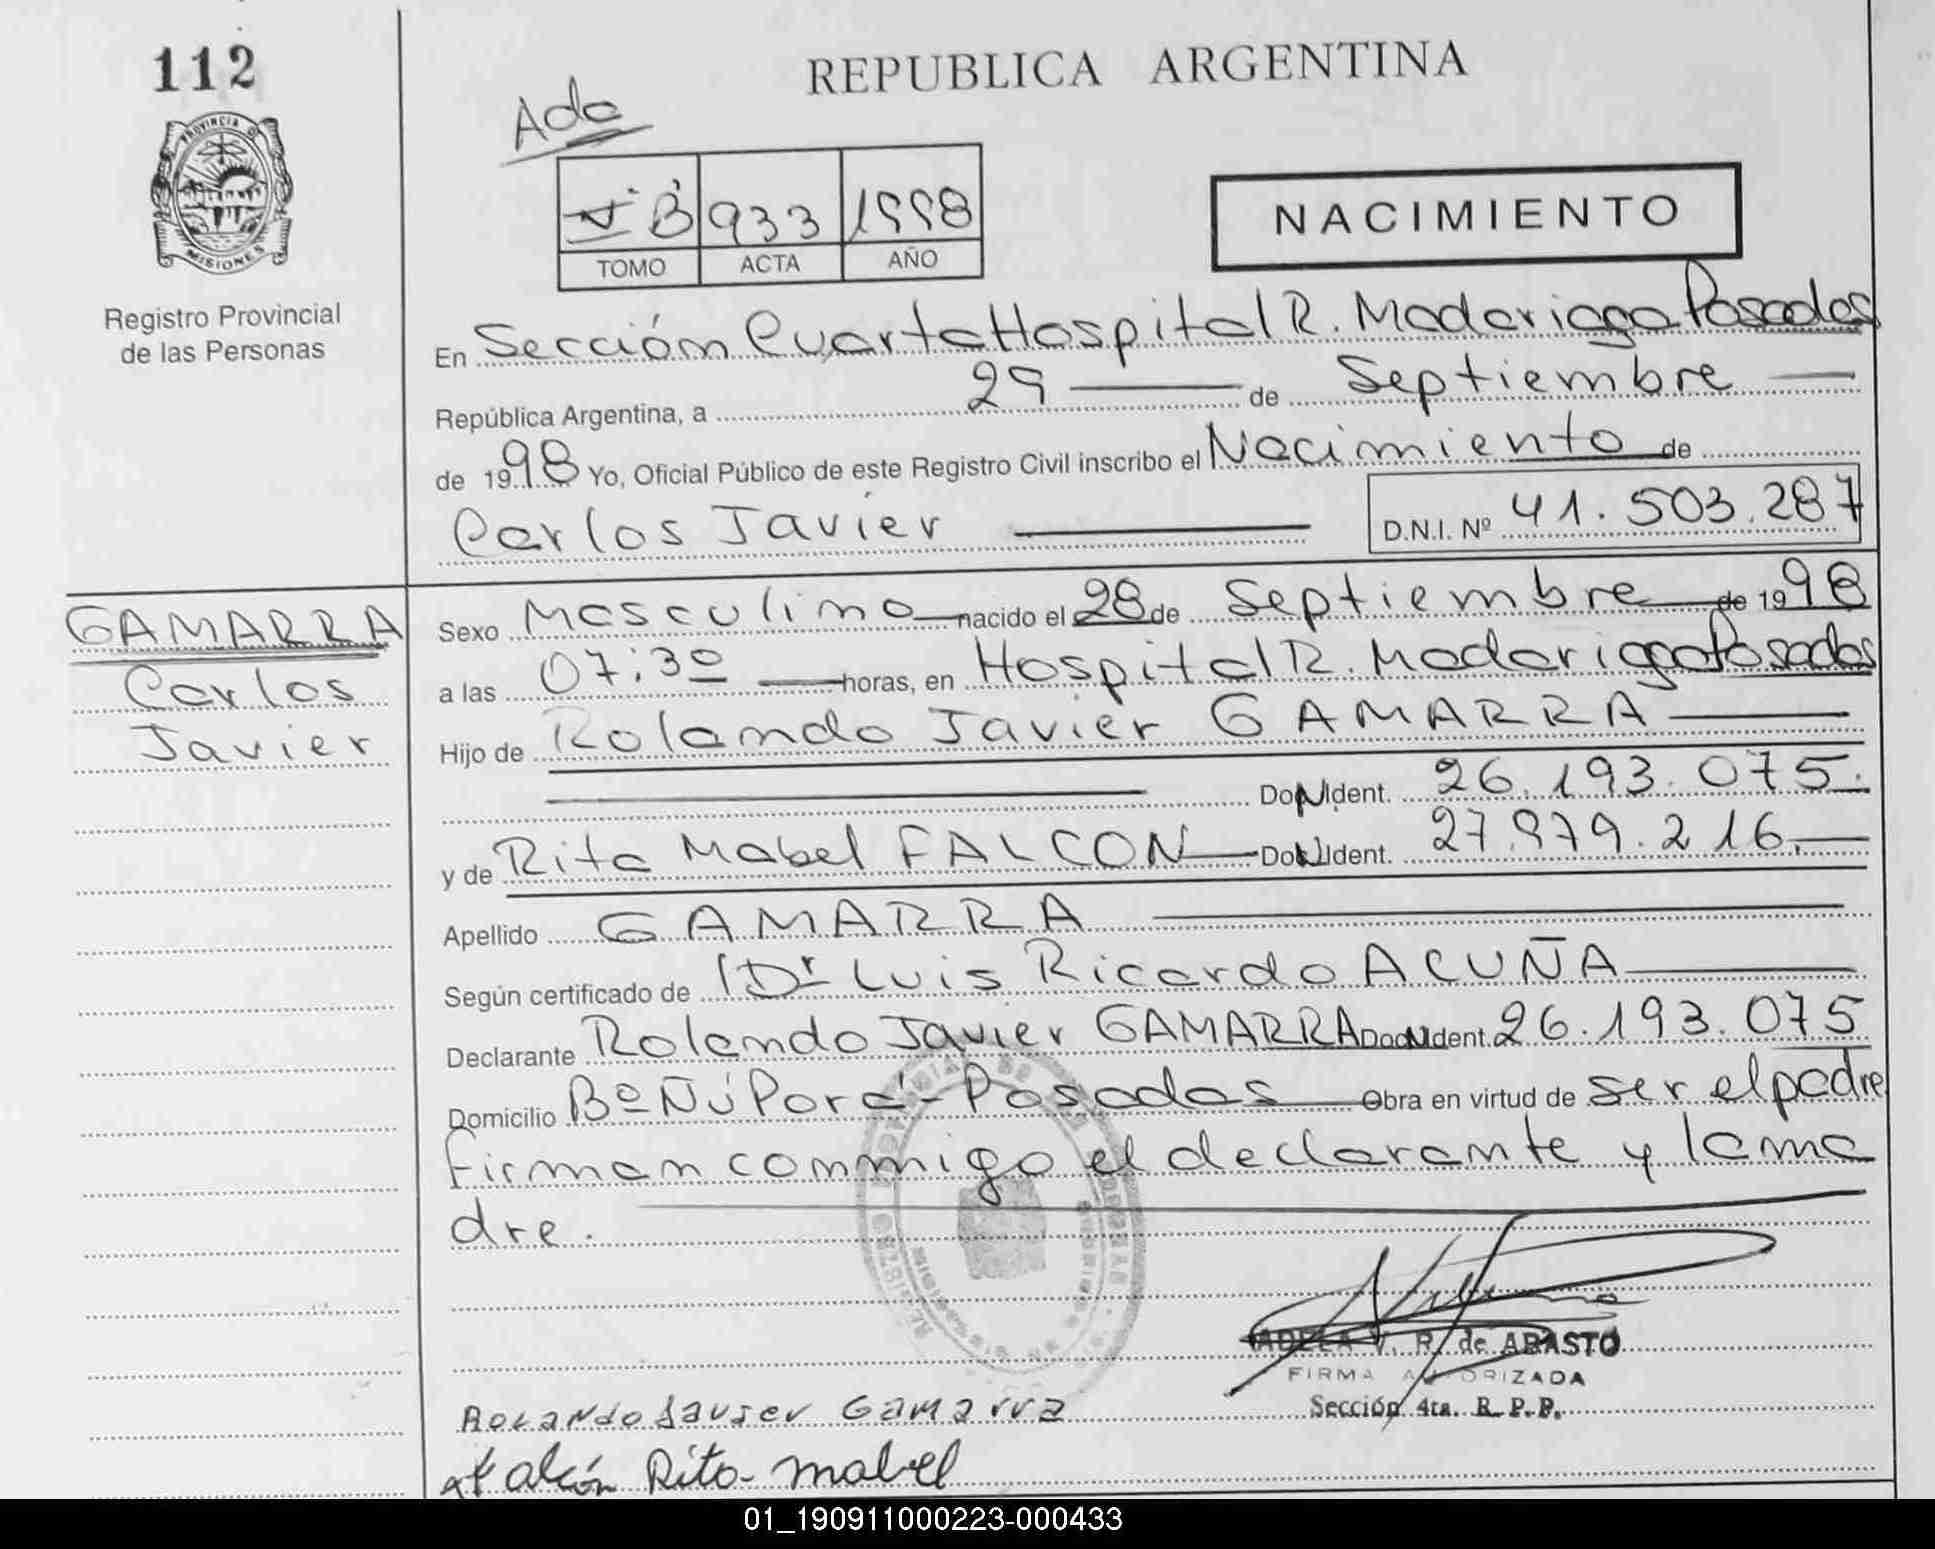 112
REPUBLICA ARGENTINA
Ada
PROVINCIA DE
MISIONES
B 933 1998
TOMO ACTA AÑO
NACIMIENTO
Registro Provincial
de las Personas
En Sección Cuarta Hospital R. Madariaga Posadas
República Argentina, a 29 de Septiembre
de 1998 Yo, Oficial Público de este Registro Civil inscribo el Nacimiento de
Carlos Javier D.N.I. Nº 41.503.287
GAMARRA
Carlos
Javier
Sexo Masculino nacido el 28 de Septiembre de 1998
a las 07:30 horas, en Hospital R. Madariaga Posadas
Hijo de Rolando Javier GAMARRA
DoNIdent. 26.193.075.
y de Rita Mabel FALCON DoNIdent. 27.979.216.
Apellido GAMARRA
Según certificado de Dr Luis Ricardo ACUÑA
Declarante Rolando Javier GAMARRA DocNIdent. 26.193.075
Domicilio Bº Ñú Porá - Posadas Obra en virtud de ser el padre
firman conmigo el declarante y la ma
dre.
ADELA V. R. de ABASTO
FIRMA AUTORIZADA
Sección 4ta. R. P. P.
Rolando Javier Gamarra
Falcón Rita mabel
01_190911000223-000433